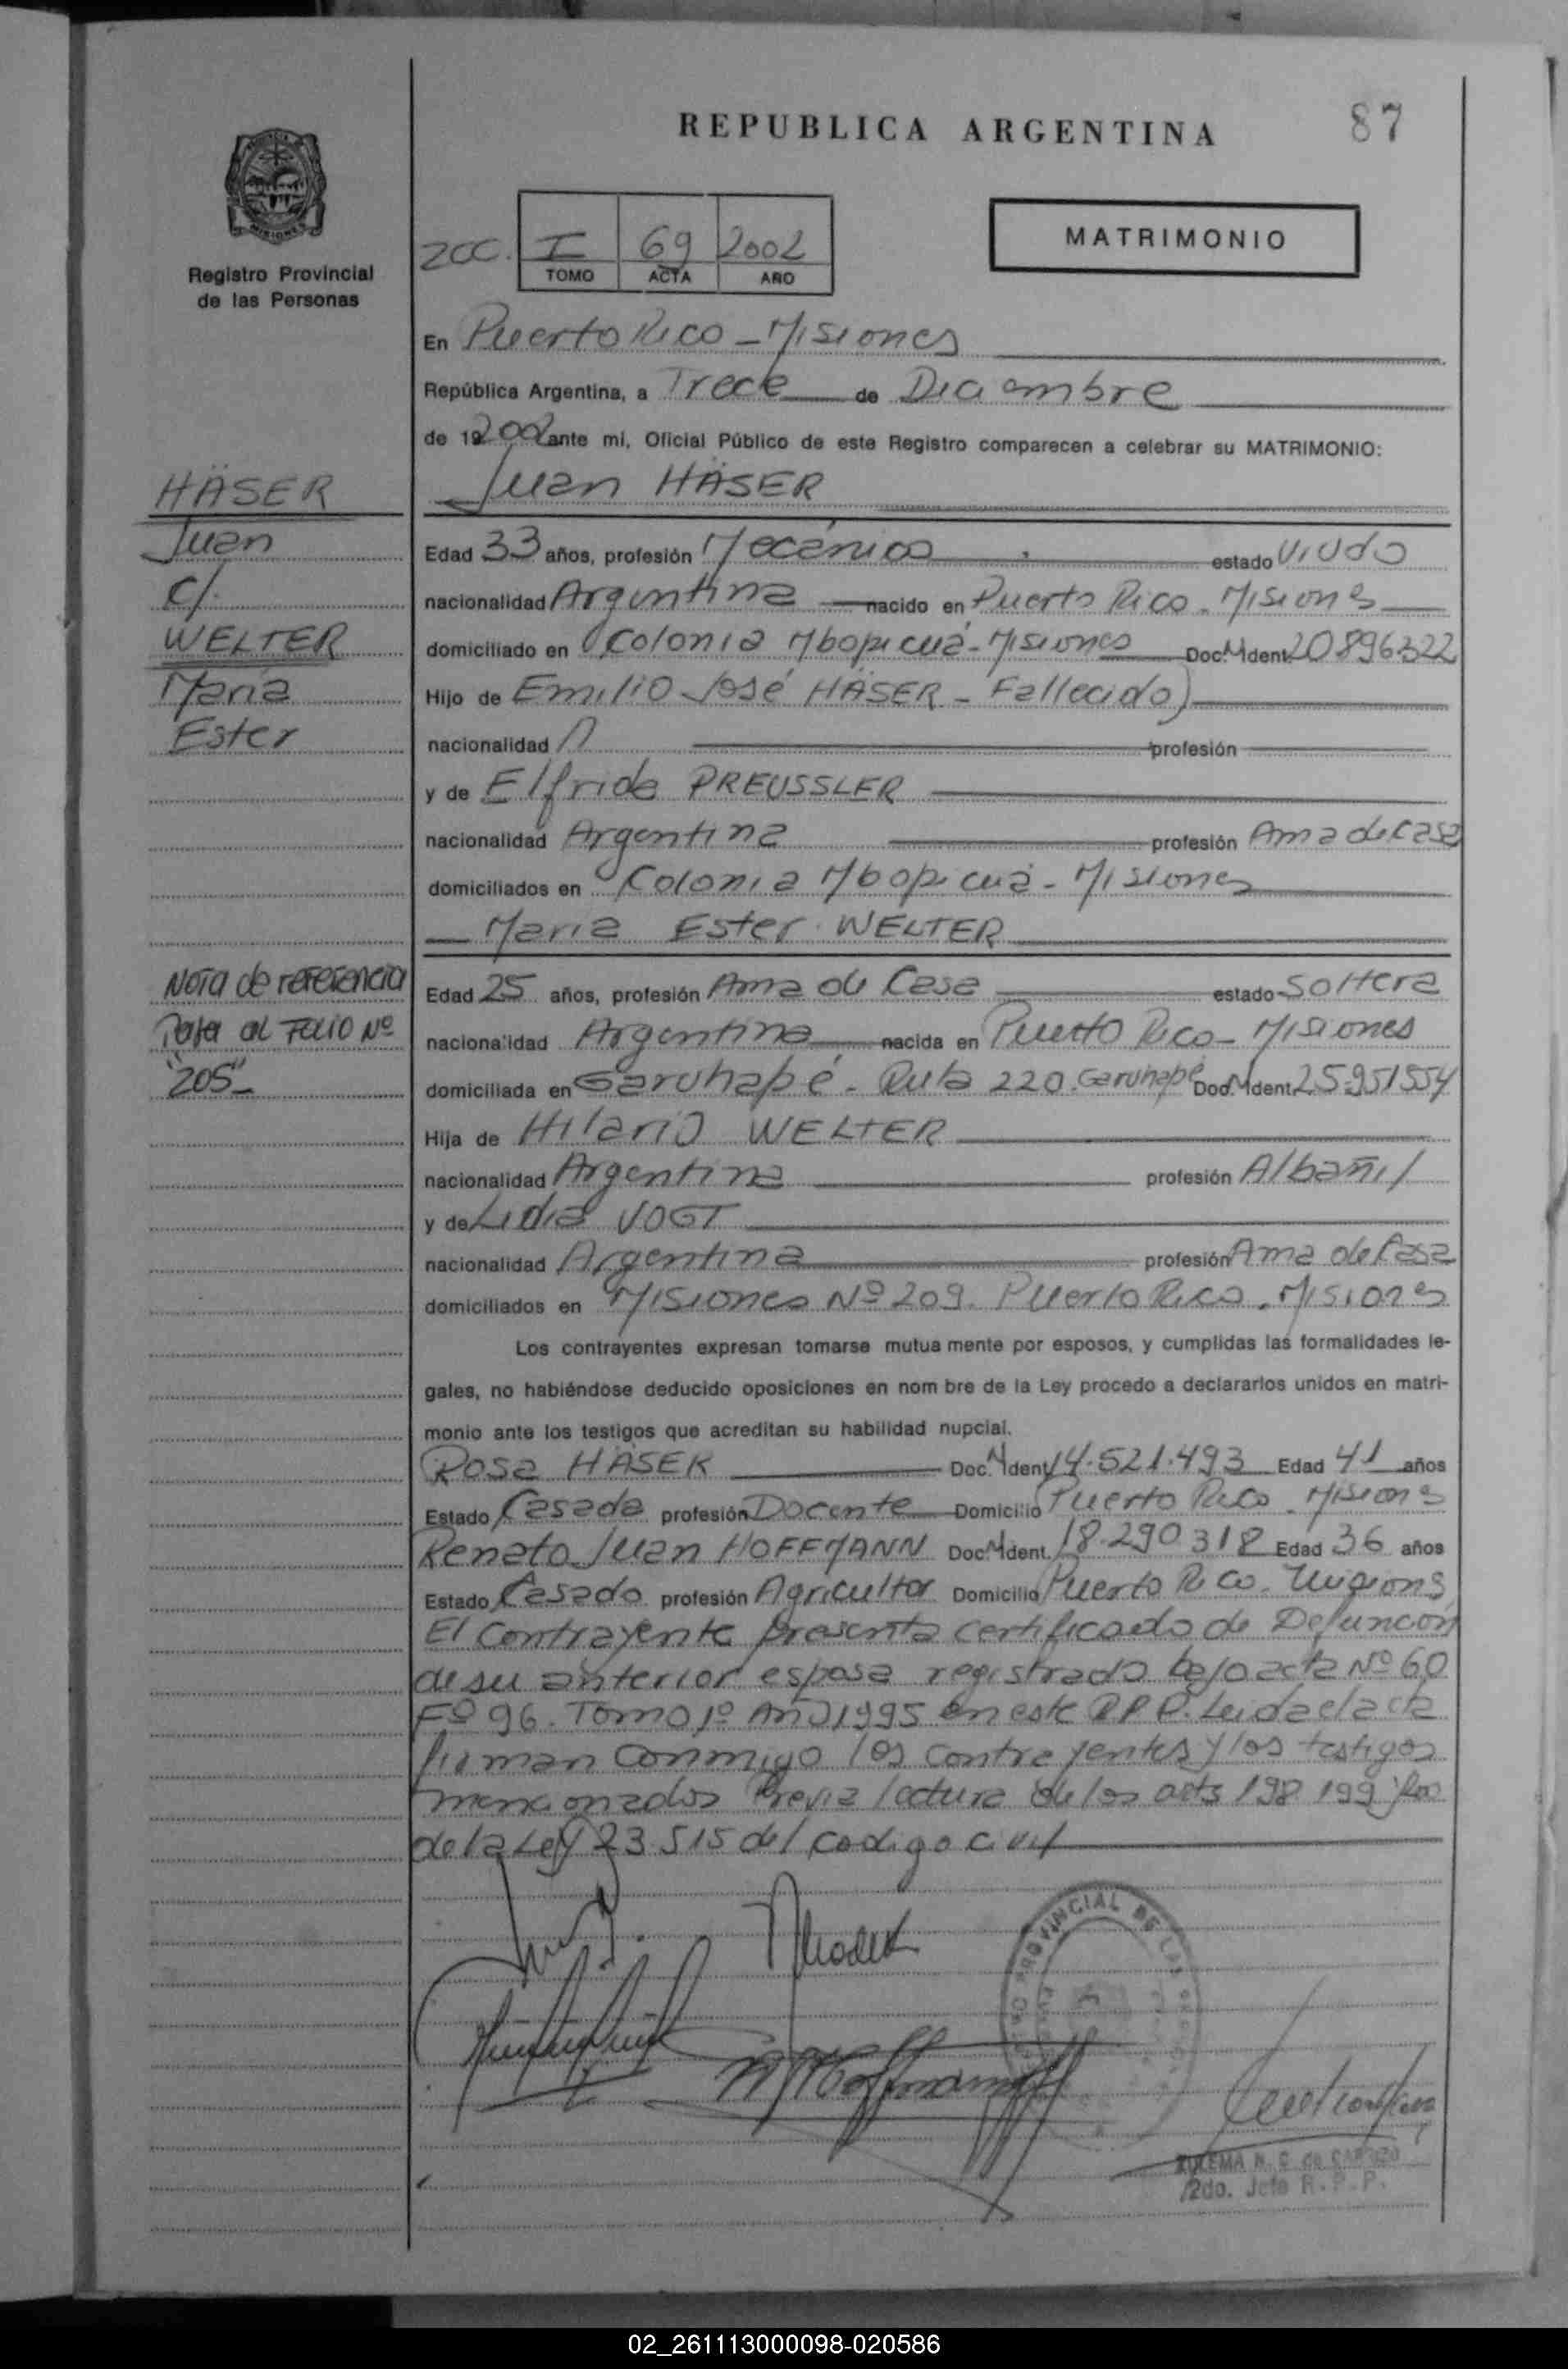 REPUBLICA ARGENTINA
87
MISIONES
Registro Provincial
de las Personas
ZCC. I 69 2002
TOMO ACTA AÑO
MATRIMONIO
En Puerto Rico - Misiones
República Argentina, a Trece de Diciembre
de 192002 ante mi, Oficial Público de este Registro comparecen a celebrar su MATRIMONIO:
HÄSER
Juan
c/.
WELTER
María
Ester
Juan HÄSER
Edad 33 años, profesión Mecánico estado Viudo
nacionalidad Argentina nacido en Puerto Rico - Misiones
domiciliado en Colonia Mbopicuá - Misiones Doc. M Ident 20896322
Hijo de Emilio José HÄSER - Fallecido)
nacionalidad profesión
y de Elfrida PREUSSLER
nacionalidad Argentina profesión Ama de Casa
domiciliados en Colonia Mbopicuá - Misiones
María Ester WELTER
Nota de referencia
Pasa al Folio Nº
"205"-
Edad 25 años, profesión Ama de Casa estado Soltera
nacionalidad Argentina nacida en Puerto Rico - Misiones
domiciliada en Garuhapé - Ruta 220. Garuhapé Doc. M Ident. 25.951554
Hija de Hilario WELTER
nacionalidad Argentina profesión Albañil
y de Lidia VOGT
nacionalidad Argentina profesión Ama de Casa
domiciliados en Misiones Nº 209. Puerto Rico. Misiones
Los contrayentes expresan tomarse mutua mente por esposos, y cumplidas las formalidades le-
gales, no habiéndose deducido oposiciones en nom bre de la Ley procedo a declararlos unidos en matri-
monio ante los testigos que acreditan su habilidad nupcial.
Rosa HÄSER Doc. M Ident 14.521.493 Edad 41 años
Estado Casada profesión Docente Domicilio Puerto Rico - Misiones
Renato Juan HOFFMANN Doc. M Ident. 18.290318 Edad 36 años
Estado Casado profesión Agricultor Domicilio Puerto Rico. Misiones
El Contrayente presenta certificado de Defunción
de su anterior esposa registrado bajo acta Nº 60
Fº 96. Tomo 1º Año 1995 en este R.P.P. Leida el acta
firman conmigo los contrayentes y los testigos
mencionados Previa lectura de los arts 198 199 y 200
de la Ley 23.515 del codigo civil
PROVINCIAL DE LAS
Hoffmann
ZULEMA N. C. de
2do. Jefe R.P.P.
02_261113000098-020586